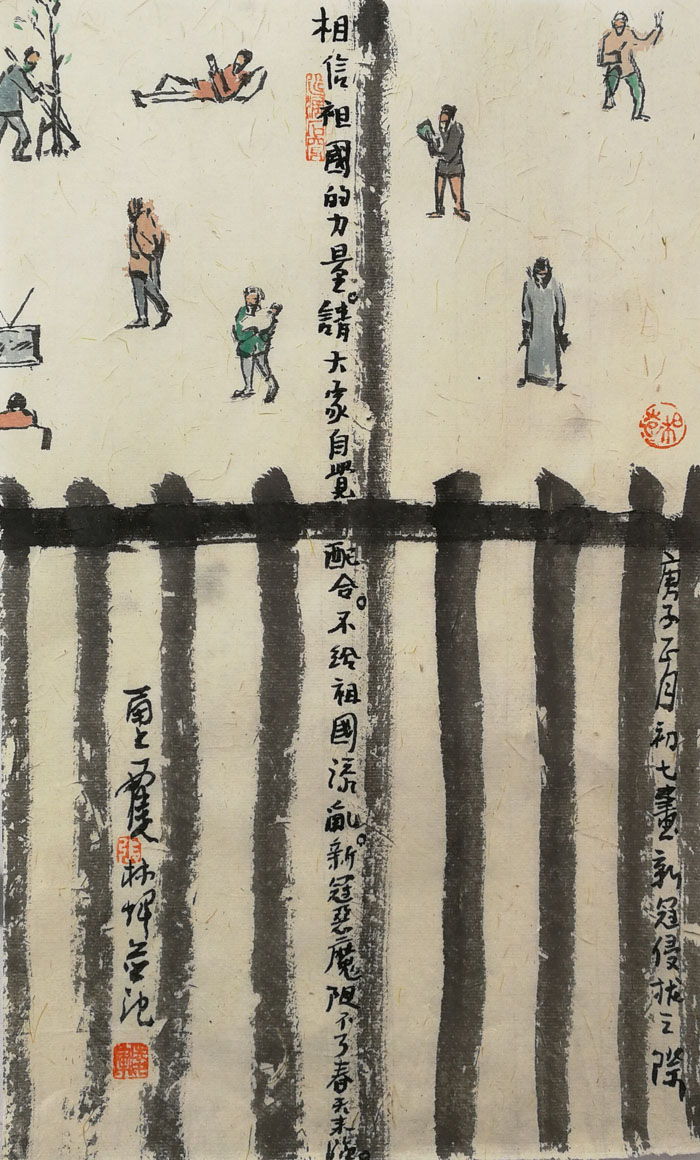 庚子正月初七畫新冠侵扰之際
相信祖國的力量。請大家自覺配合。不給祖國添亂。新冠惡魔阻不了春天来臨。
林辉
張